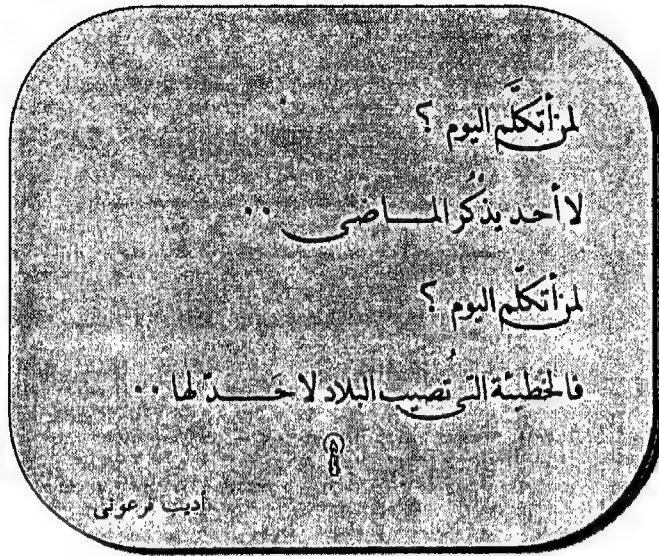 لمن أتكلَّم اليوم ؟
لا أحد يذكُر المــاضى ..
لمن أتكلَّم اليوم ؟
فالخطيئة التى تُصيب البلاد لا حَــدّ لها ..
أديب فرعونى